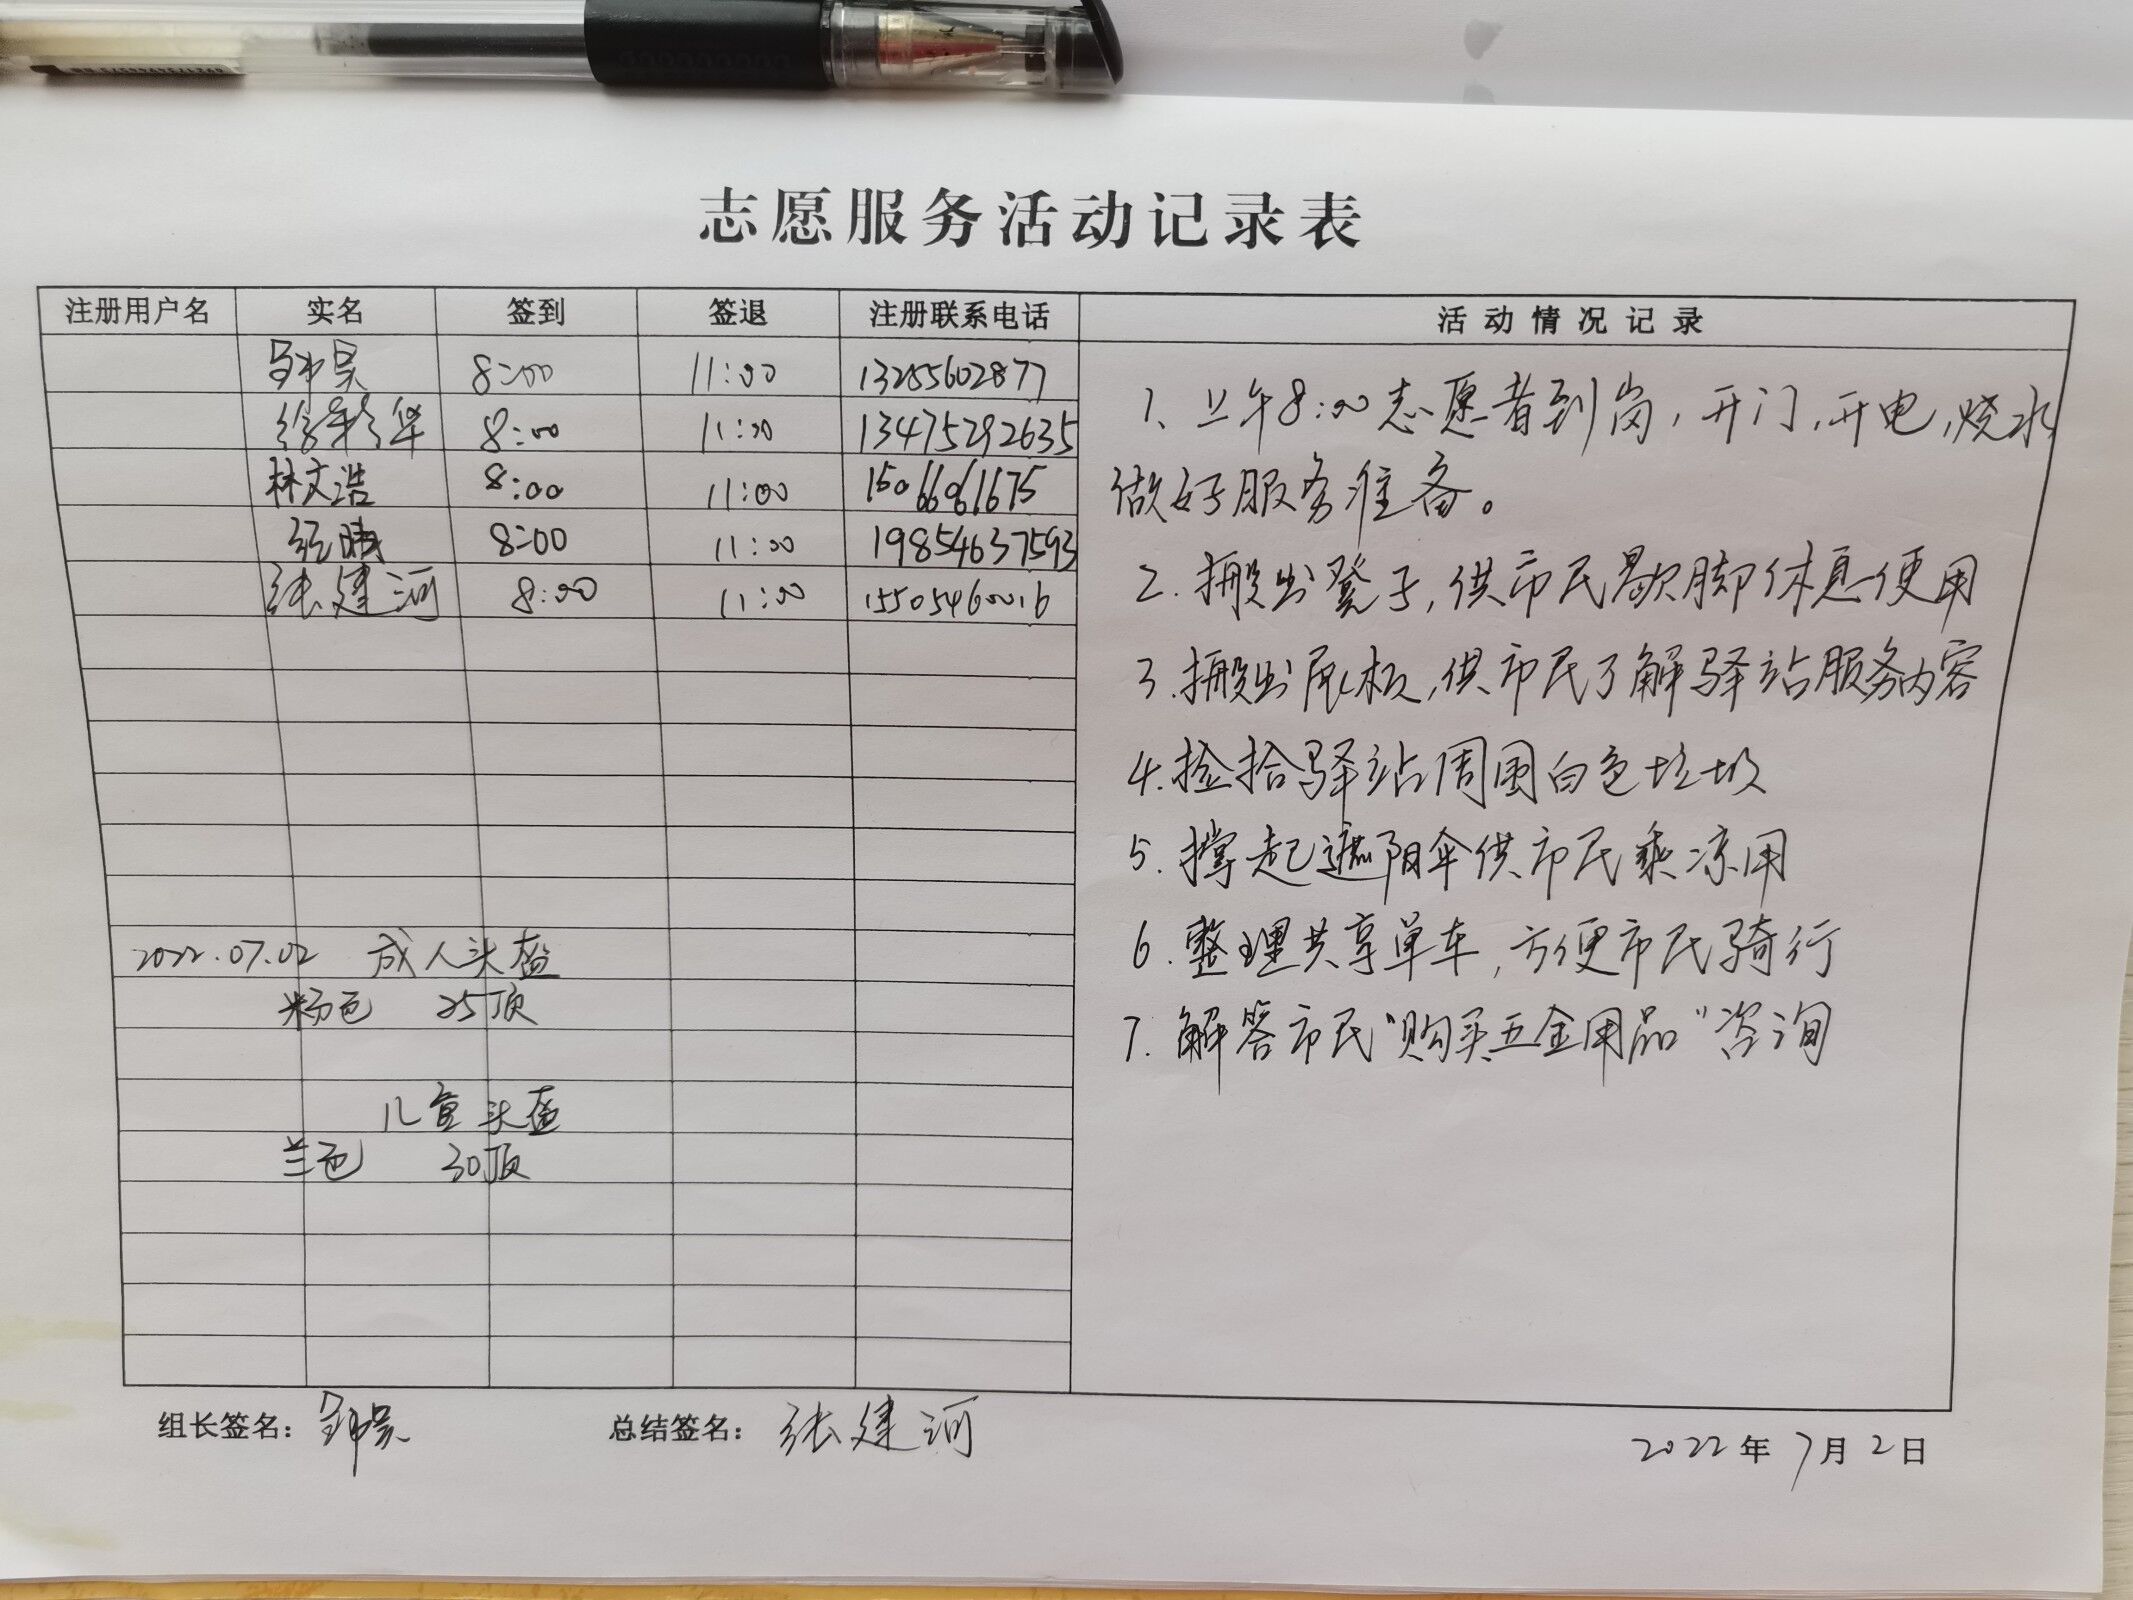 志愿服务活动记录表
注册用户名 实名 签到 签退 注册联系电话 活动情况记录
8:00 11:00 13285602877
华 8:00 11:00 13475292635
林文浩 8:00 11:00 15066061675
晴 8:00 11:00 19854637593
张建河 8:00 11:00 15505460016
2022.07.02 成人头盔
粉色 25顶
儿童头盔
兰色 30顶
1、上午8:00志愿者到岗，开门，开电，烧水
做好服务准备。
2. 搬出凳子，供市民歇脚休息使用
3. 搬出展板，供市民了解驿站服务内容
4. 捡拾驿站周围白色垃圾
5. 撑起遮阳伞供市民乘凉用
6. 整理共享单车，方便市民骑行
7. 解答市民“购买五金用品”咨询
组长签名： 总结签名：张建河
2022年7月2日